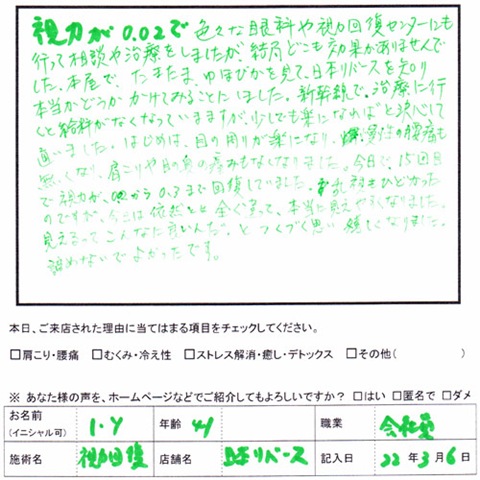 視力が0.02で色々な眼科や視力回復センターにも
行って相談や治療をしましたが、結局どこも効果がありませんで
した。本屋で、たまたまゆほびかを見て、日本リバースを知り
本当かどうかかけてみることにしました。新幹線で、治療に行
くと給料がなくなっていますが、少しでも楽になればと決心して
通いました。はじめは、目の周りが楽になり、慢性の腰痛も
無くなり、肩こりや目の奥の痛みもなくなりました。今日で、15回目
で視力が、0.02から0.3まで回復していました。乱視もひどかった
のですが、今では依然とと全く違って、本当に見えやすくなりました。
見えるってこんなに良いんだ。とつくづく思い嬉しくなりました。
諦めないでよかったです。
本日、ご来店された理由に当てはまる項目をチェックしてください。
□肩こり・腰痛 □むくみ・冷え性 □ストレス解消・癒し・デトックス □その他( )
※ あなた様の声を、ホームページなどでご紹介してもよろしいですか? □はい □匿名で □ダメ
お名前 (イニシャル可) I・Y 年齢 41 職業 会社員
施術名 視力回復 店舗名 日本リバース 記入日 22年3月6日